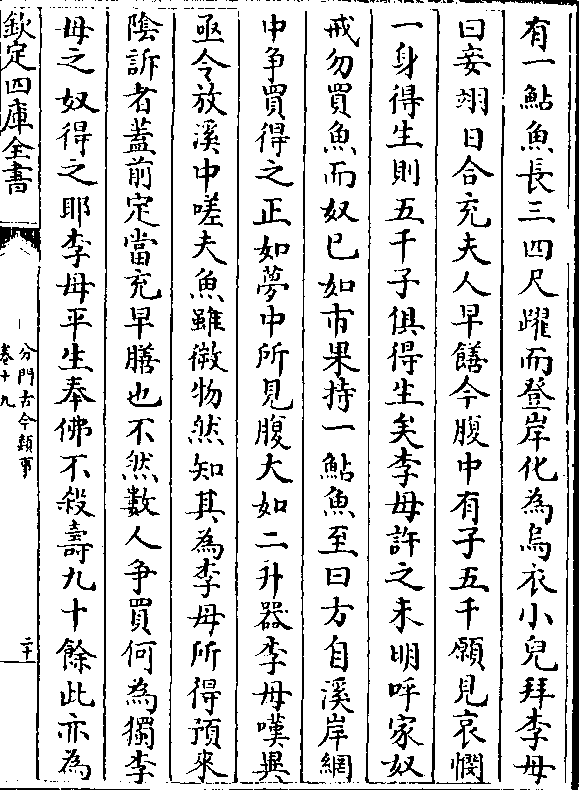 有一鮎魚長三四尺躍而登岸化為烏衣小兒拜李母
曰妾翊日合充夫人早饍今腹中有子五千願見哀憫
一身得生則五千子俱得生矣李母許之未明呼家奴
戒勿買魚而奴已如市果持一鮎魚至曰方自溪岸網
中争買得之正如夢中所見腹大如二升器李母嘆異
亟令放溪中嗟夫魚雖微物然知其為李母所得預來
陰訴者葢前定當充早膳也不然數人争買何為獨李
母之奴得之耶李母平生奉佛不殺壽九十餘此亦為
欽定四庫全書
分門古今類事
卷十九
二十